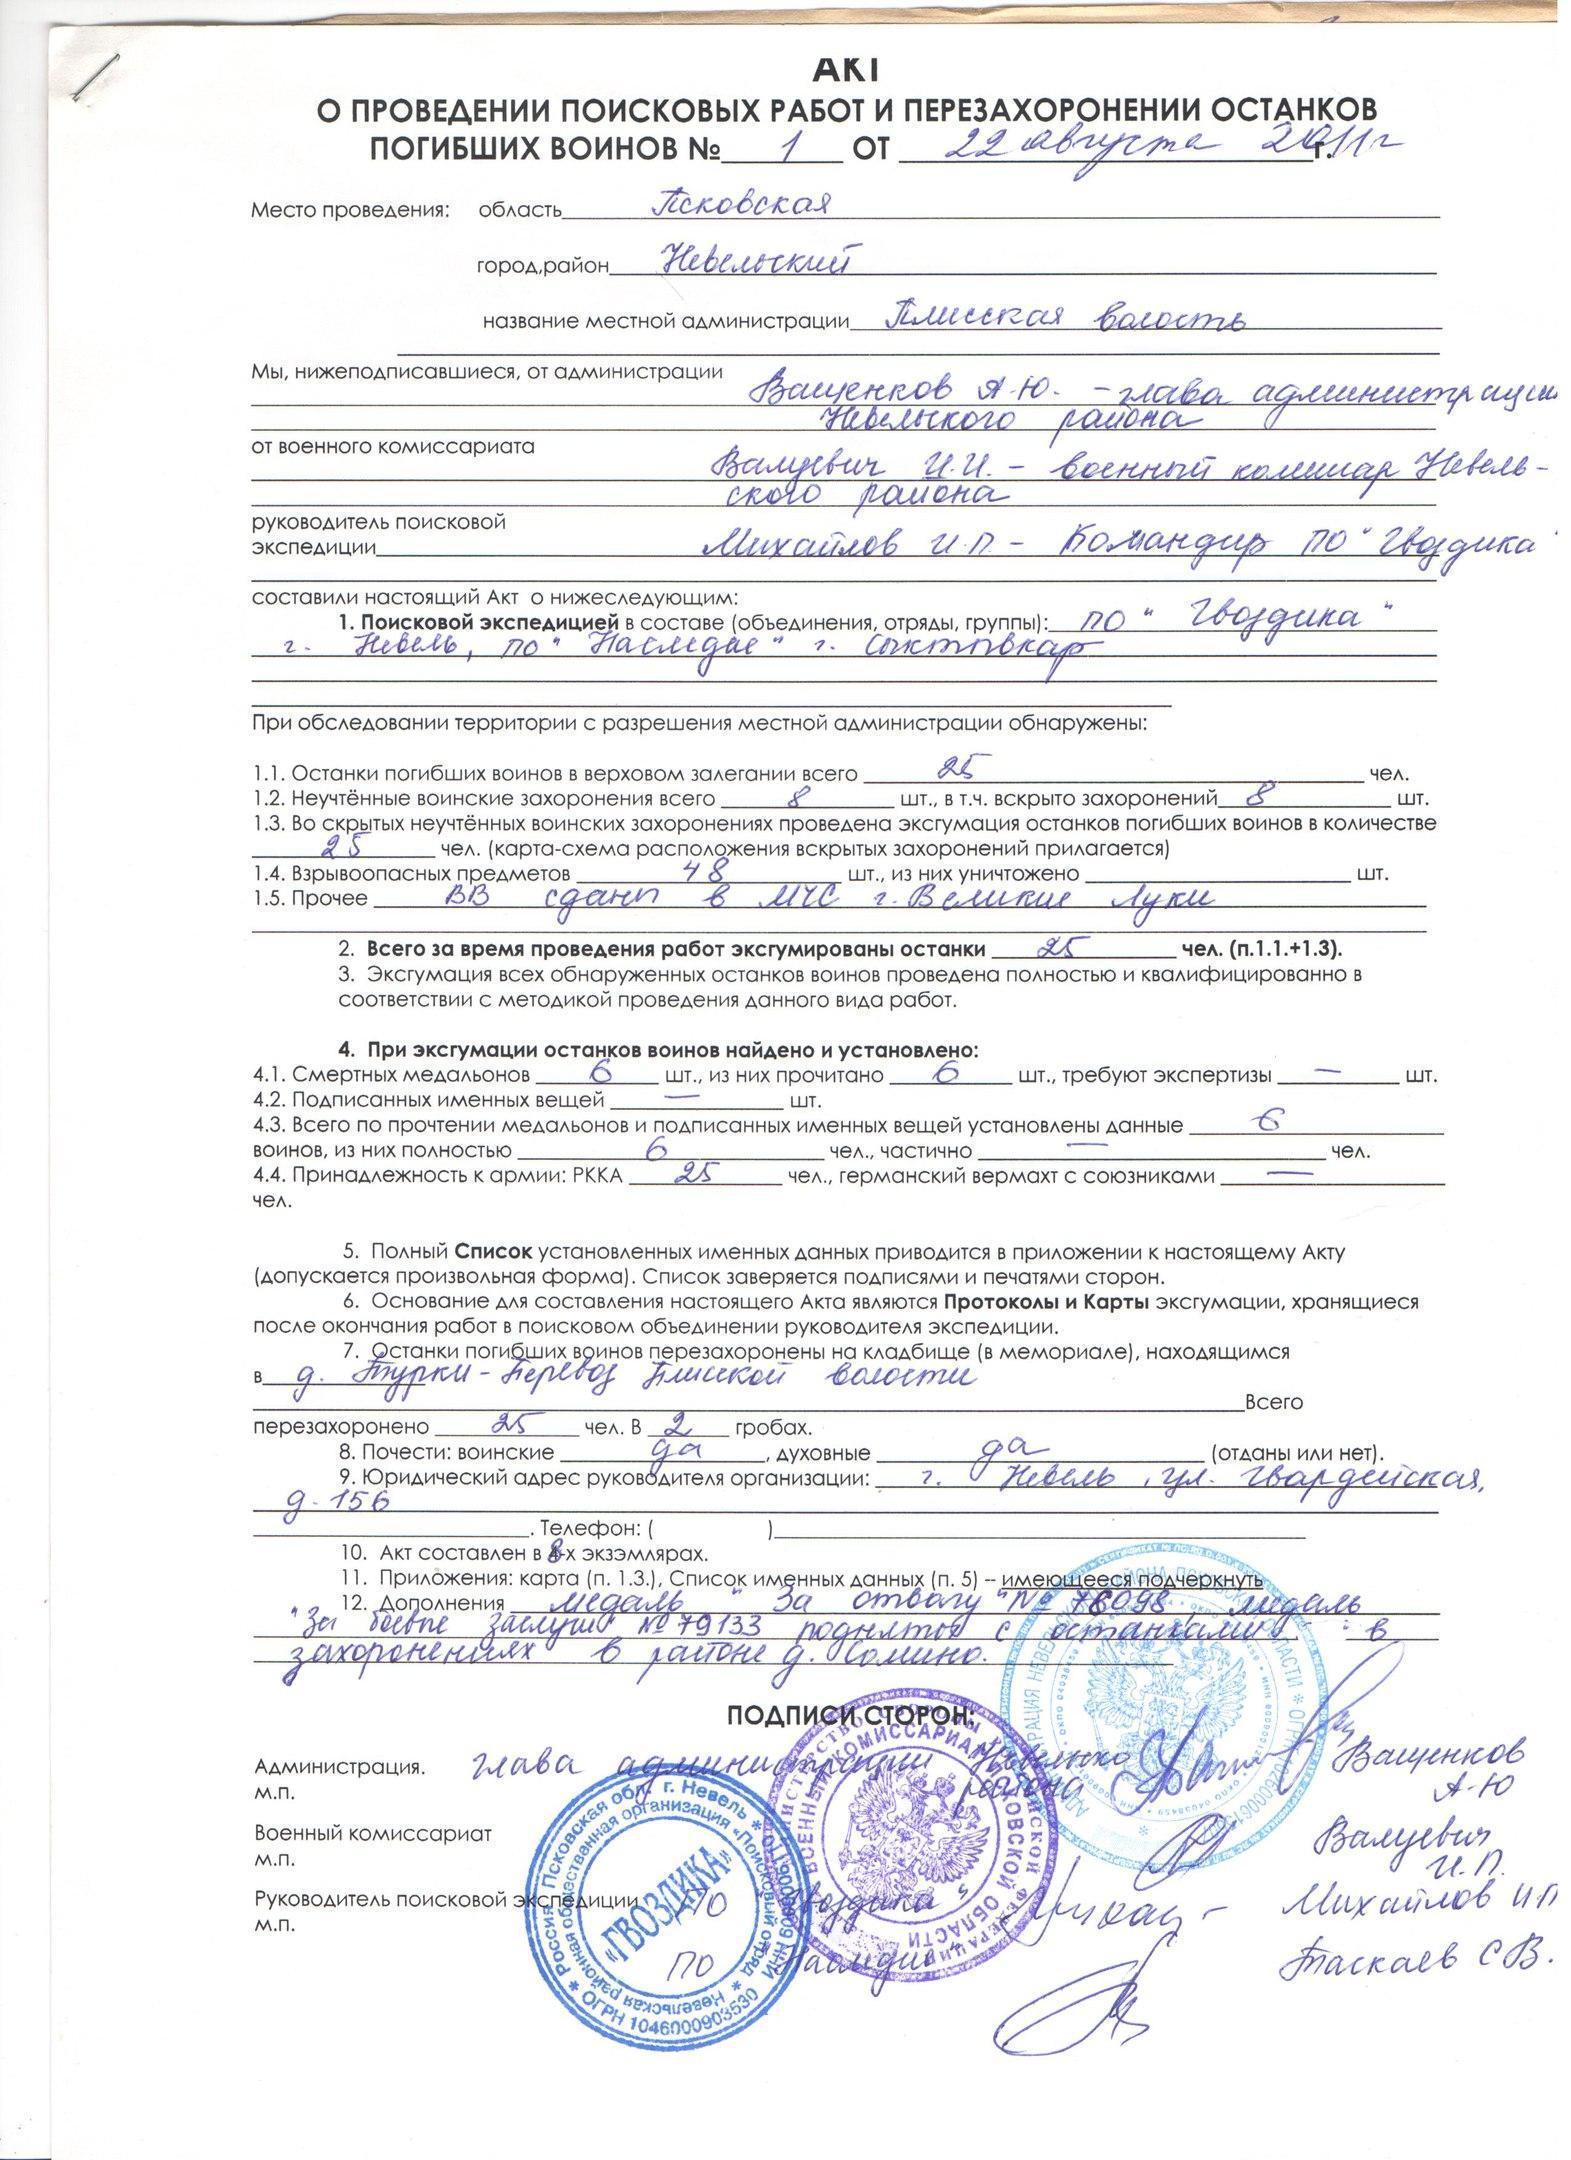 АКТ
О ПРОВЕДЕНИИ ПОИСКОВЫХ РАБОТ И ПЕРЕЗАХОРОНЕНИИ ОСТАНКОВ
ПОГИБШИХ ВОИНОВ № 1 ОТ 22 августа 2011г г.
Место проведения: область Псковская
город,район Невельский
название местной администрации Плисская волость
Мы, нижеподписавшиеся, от администрации
Ващенков А.Ю. - глава администрации
Невельского района
от военного комиссариата
Валуевич И.И. - военный комиссар Невель-
ского района
руководитель поисковой
экспедиции Михайлов И.П - Командир ПО "Гвоздика"
составили настоящий Акт о нижеследующим:
1. Поисковой экспедицией в составе (объединения, отряды, группы): ПО "Гвоздика"
г. Невель, ПО "Наследие" г. Сыктывкар
При обследовании территории с разрешения местной администрации обнаружены:
1.1. Останки погибших воинов в верховом залегании всего 25 чел.
1.2. Неучтённые воинские захоронения всего 8 шт., в т.ч. вскрыто захоронений 8 шт.
1.3. Во скрытых неучтённых воинских захоронениях проведена эксгумация останков погибших воинов в количестве
25 чел. (карта-схема расположения вскрытых захоронений прилагается)
1.4. Взрывоопасных предметов 48 шт., из них уничтожено шт.
1.5. Прочее ВВ сданы в МЧС г. Великие Луки
2. Всего за время проведения работ эксгумированы останки 25 чел. (п.1.1.+1.3).
3. Эксгумация всех обнаруженных останков воинов проведена полностью и квалифицированно в
соответствии с методикой проведения данного вида работ.
4. При эксгумации останков воинов найдено и установлено:
4.1. Смертных медальонов 6 шт., из них прочитано 6 шт., требуют экспертизы — шт.
4.2. Подписанных именных вещей — шт.
4.3. Всего по прочтении медальонов и подписанных именных вещей установлены данные 6
воинов, из них полностью 6 чел., частично — чел.
4.4. Принадлежность к армии: РККА 25 чел., германский вермахт с союзниками —
чел.
5. Полный Список установленных именных данных приводится в приложении к настоящему Акту
(допускается произвольная форма). Список заверяется подписями и печатями сторон.
6. Основание для составления настоящего Акта являются Протоколы и Карты эксгумации, хранящиеся
после окончания работ в поисковом объединении руководителя экспедиции.
7. Останки погибших воинов перезахоронены на кладбище (в мемориале), находящимся
в д. Турки-Перевоз Плисской волости
Всего
перезахоронено 25 чел. В 2 гробах.
8. Почести: воинские да, духовные да (отданы или нет).
9. Юридический адрес руководителя организации: г. Невель, ул. Гвардейская,
д. 156
. Телефон: ( )
10. Акт составлен в 8-х экзэмлярах.
11. Приложения: карта (п. 1.3.), Список именных данных (п. 5) – имеющееся подчеркнуть
12. Дополнения медаль "За отвагу" № 76098 медаль
"За боевые заслуги" № 79133 подняты с останками в
захоронениях в районе д. Сомино.
ПОДПИСИ СТОРОН:
Администрация. глава администрации Невельского района Ващенков
А.Ю
м.п.
Военный комиссариат Валуевич
И.П.
м.п.
Руководитель поисковой экспедиции ПО "Гвоздика" Михайлов ИП
м.п.
ПО "Наследие" Таскаев С В.
Россия Псковская обл. г. Невель
ОГРН 1046000903530
Невельская районная общественная организация «Поисковый отряд
«ГВОЗДИКА»
ВОЕННЫЙ КОМИССАРИАТ ПСКОВСКОЙ ОБЛАСТИ